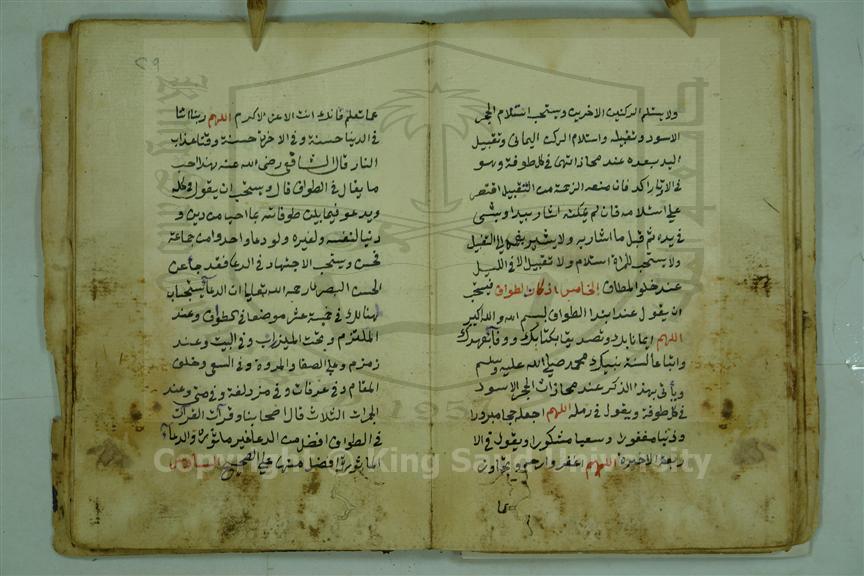 ولا يستلم الركنين الاخرين ويستحب استلام الحجر
الاسود وتقبيله واستلام الركن اليماني وتقبيل
اليد بعده عند محاذاتهما في كل طوفة وهو
في الاوتار اكد فان منعه الزحمة من التقبيل اقتصر
على استلامه فان لم يمكنه اشار بيده او بشي
في يده ثم قبل ما اشار به ولا يشير بفمه الى التقبيل
ولا يستحب للمراة استلام ولا تقبيل الا في الليل
عند خلو المطاف الخامس اذكار الطواف فيستحب
ان يقول عند ابتدا الطواف بسم الله والله اكبر
اللهم ايمانا بك وتصديقا بكتابك ووفاء بعهدك
واتباعا لسنة نبيك محمد صلى الله عليه وسلم
وياتي بهذا الذكر عند محاذات الحجر الاسود
في كل طوفة ويقول في رمله اللهم اجعله حجا مبرورا
وذنبا مغفورا وسعيا مشكورا ويقول في الا
ربعة الاخيرة اللهم اغفر وارحم وتجاوز
عما
٢٩
عما تعلم فانك انت الاعز الاكرم اللهم ربنا اتنا
في الدنيا حسنة وفي الاخرة حسنة وقنا عذاب
النار قال الشافعي رضي الله عنه هذا احب
ما يقال في الطواف قال ويستحب ان يقول في كله
ويدعو فيما بين طوفاته بما احب من دين و
دنيا لنفسه ولغيره ولو دعا واحد وامن جماعة
فحسن ويستحب الاجتهاد في الدعا فقد جا عن
الحسن البصري رحمه الله تعالى ان الدعا يستجاب
هنالك في خمسة عشر موضعا في الطواف وعند
الملتزم وتحت الميزاب وفي البيت وعند
زمزم وعلى الصفا والمروة وفي السعي وخلف
المقام وفي عرفات وفي مزدلفة وفي منى وعند
الجمرات الثلاث قال اصحابنا وقراة القران
في الطواف افضل من الدعا بغير ماثورة والدعا
الماثورة افضل منها على الصحيح السادس
Copyright © King Saud University
195